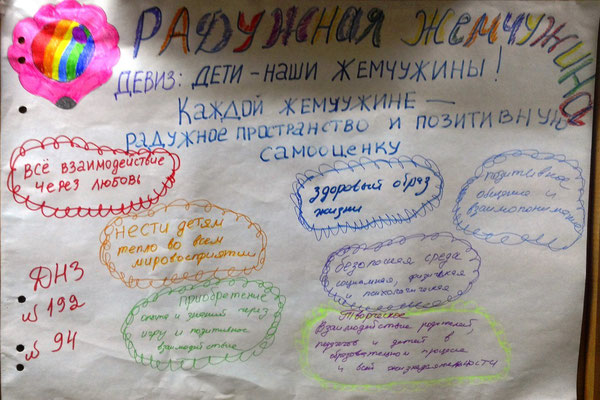 РАДУЖНАЯ ЖЕМЧУЖИНА
ДЕВИЗ: ДЕТИ - НАШИ ЖЕМЧУЖИНЫ!
КАЖДОЙ ЖЕМЧУЖИНЕ —
РАДУЖНОЕ ПРОСТРАНСТВО И ПОЗИТИВНУЮ
САМООЦЕНКУ
ВСЁ ВЗАИМОДЕЙСТВИЕ
ЧЕРЕЗ ЛЮБОВЬ
ЗДОРОВЫЙ ОБРАЗ
ЖИЗНИ
ПОЗИТИВНОЕ
общение и
взаимопонимание
НЕСТИ ДЕТЯМ
тепло во всем
мировосприятии
безопасная среда
социальная, физическая
и психологическая
ДНЗ
№ 192
№ 94
Приобретение
опыта и знаний через
игру и позитивное
взаимодействие
Творческое
Взаимодействие родителей,
педагогов и детей в
образовательном процессе
и всей жизнедеятельности